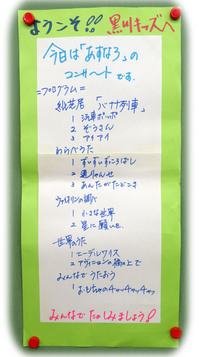 ようこそ!! 黒川キッズへ
今日は「あすなろ」の
コンサートです。
=プログラム=
紙芝居 「バナナ列車」
1 汽車ポッポ
2 ぞうさん
3 アイアイ
わらべうた
1 ずいずいずっころばし
2 通りゃんせ
3 あんたがたどこさ
ヴァイオリンの調べ
1 小さな世界
2 星に願いを
世界のうた
1 エーデルワイス
2 アヴィニョンの橋の上で
みんなでうたおう
1 おもちゃのチャチャチャ
みんなでたのしみましょう!